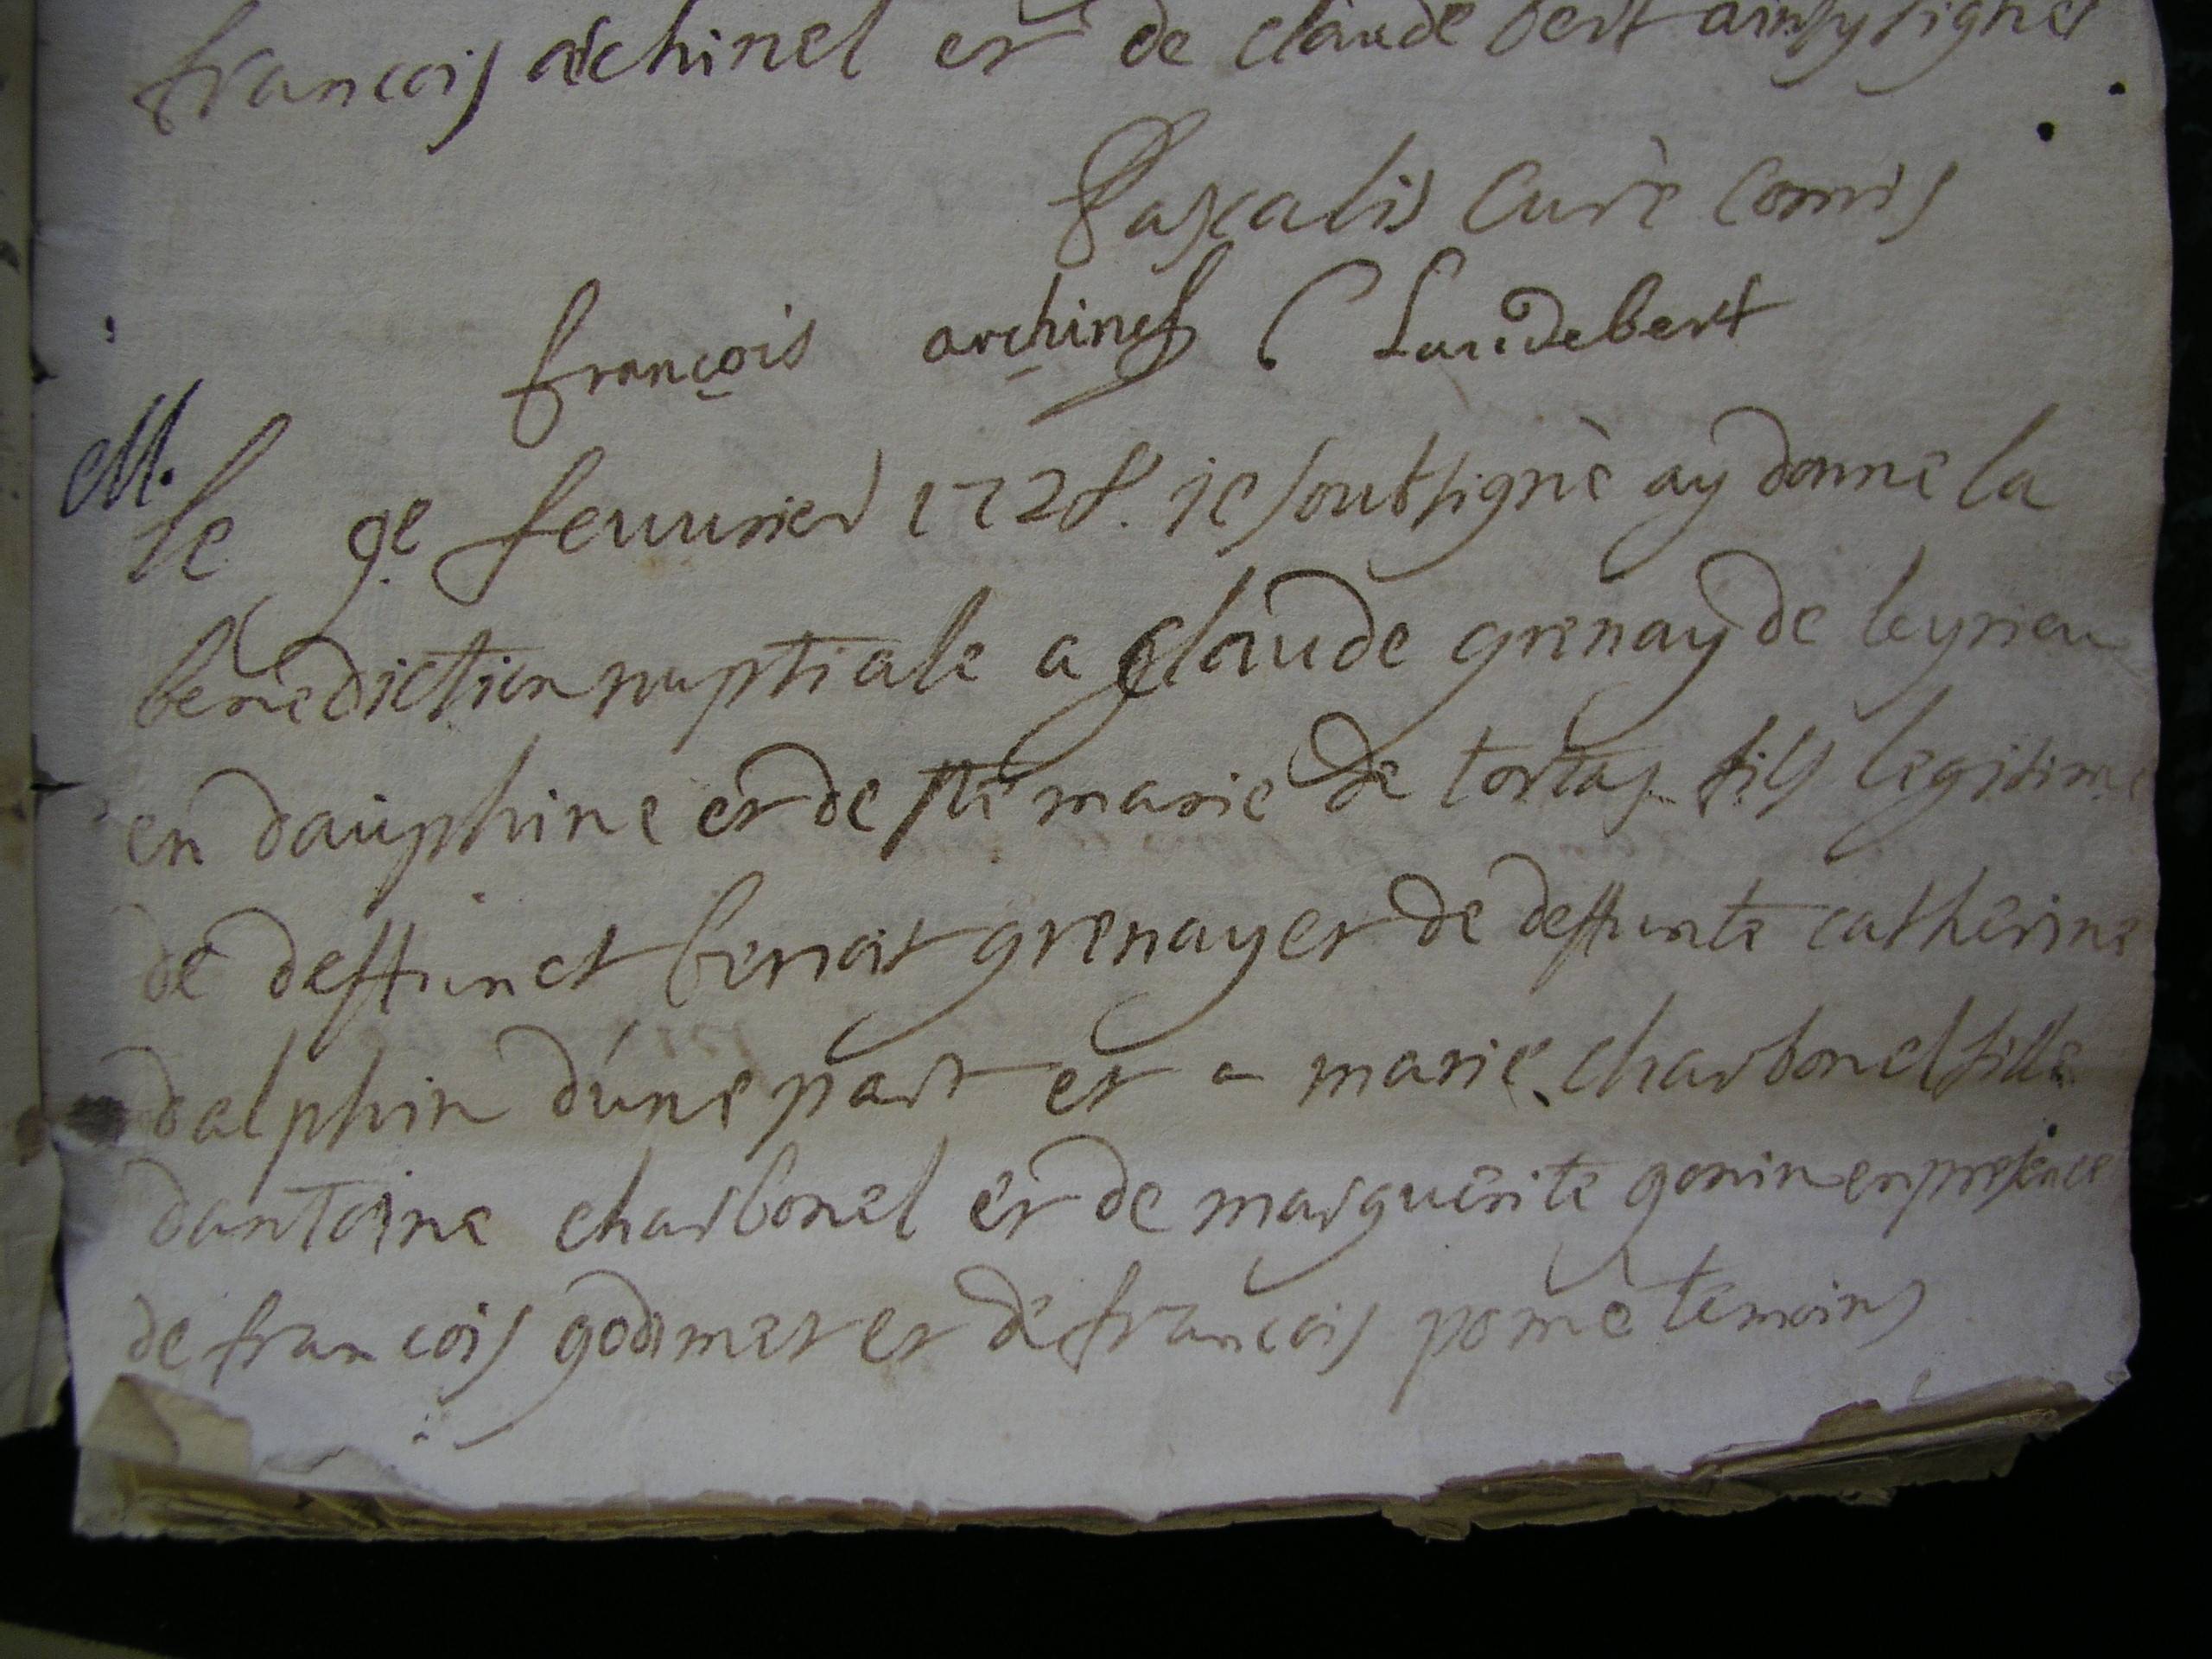 françois archinel et de claude bert ainsy signés
Pascalis Curè Comis
françois archinel Claudebert
M.
le 9e feuurier 1728. je soubsignè ay donne la
benediction nuptiale a claude grenay de leyrieu
en dauphine et de ste marie de tortas fils legitime
de deffunct benoit grenay et de deffunte catherine
dalphin d'une part et a marie charbonel fille
dantoine charbonel et de marguerite gonin en presence
de françois godimet et de françois pomè temoins